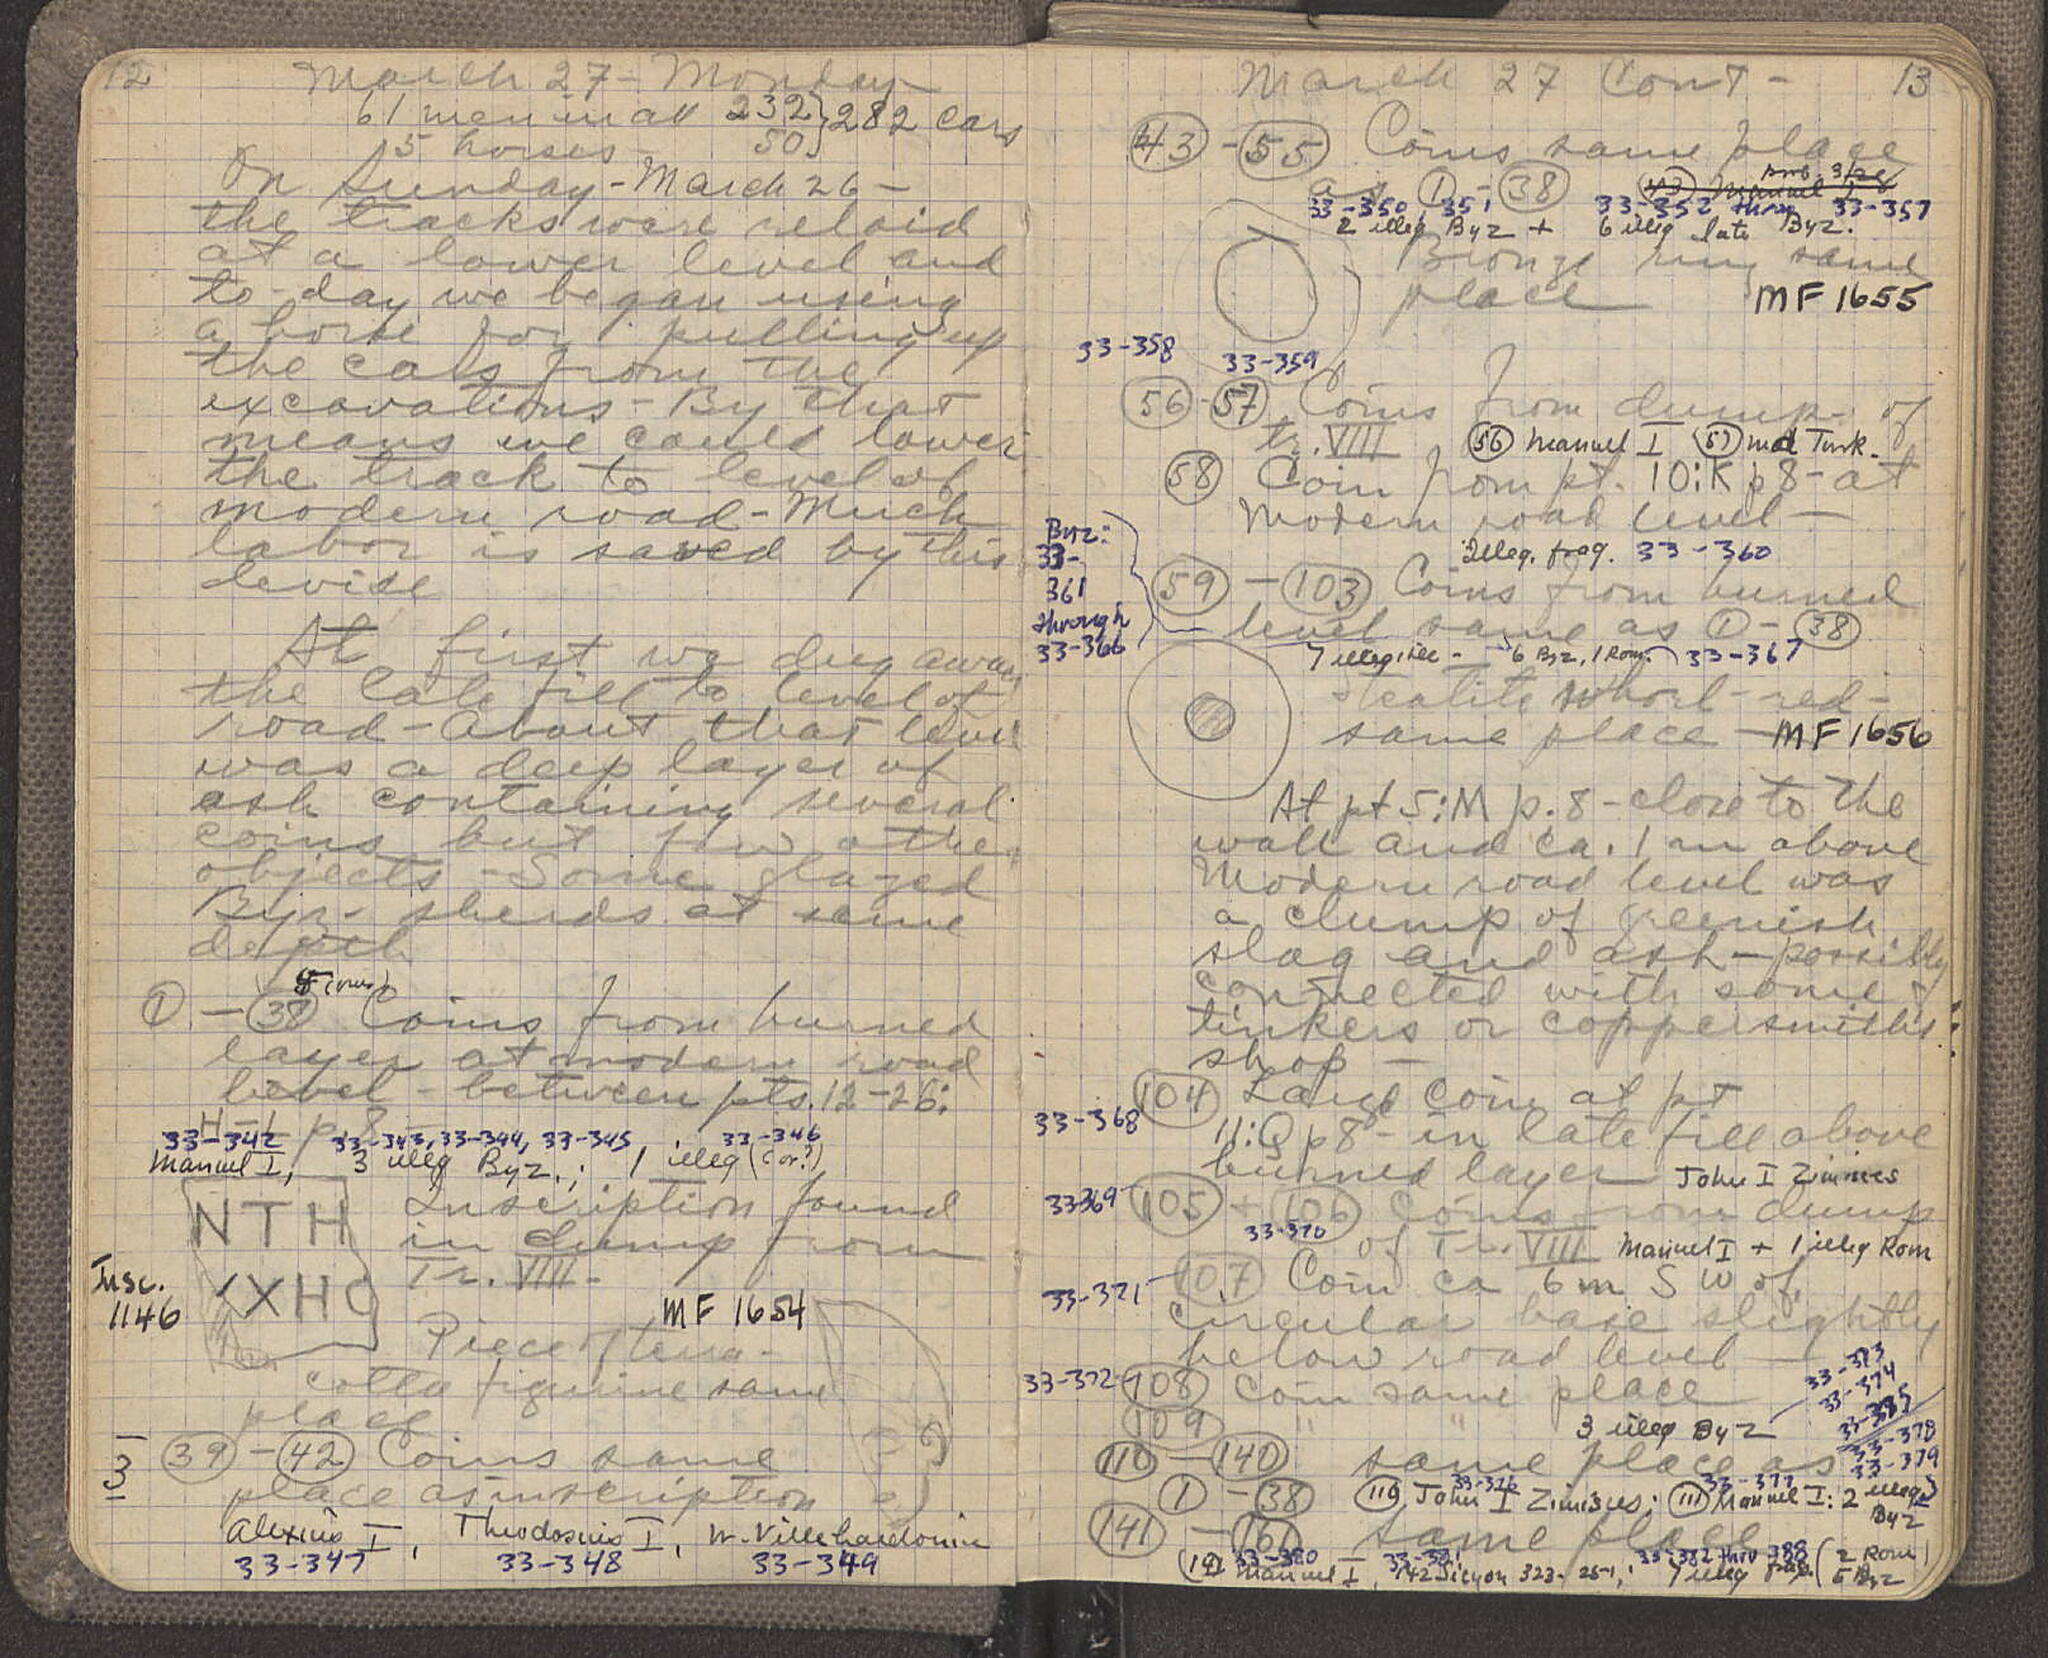 12
March 27 - Monday
61 men in all 232 } 282 cars
5 horses - 50
On Sunday - March 26 -
the tracks were relaid
at a lower level and
to-day we began using
a horse for pulling up
the cars from the
excavations - By that
means we could lower
the track to level of
modern road - Much
labor is saved by this
devise
At first we dug away
the late fill to level of
road - About that level
was a deep layer of
ash containing several
coins but few other
objects - Some glazed
Byz- sherds at same
depth
① - ㊳ Coins from burned
layer at modern road
level - between pts. 12-26:
H-L p.8 -
33-342 33-343, 33-344, 33-345, 33-346
Manuel I, 3 illeg Byz.; 1 illeg (Cor?)
NTH
XHC
Inscription found
in dump from
Tr. VIIII -
Insc.
1146
MF 1654
Piece of terra-
cotta figurine same
place
3
㊴ - ㊷ Coins same
place as inscription
Alexius I, Theodosius I, W. Villehardouin
33-347 33-348 33-349
March 27 Cont - 13
㊸ - 55 Coins same place
as ① - ㊳
33-350, 351 33-352 thru 33-357
2 illeg Byz + 6 illeg late Byz.
Bronze ring same
place MF 1655
33-358 33-359
56 - 57 Coins from dump of
tr. VIIII 56 Manuel I 57 mod Turk.
58 Coin from pt. 10:K p8 - at
Modern road level -
Illeg. frag. 33-360
Byz:
33-
361
through
33-366
59 - 103 Coins from burned
level same as ① - ㊳
7 illeg - 6 Byz, 1 Rom. 33-367
Steatite whorl - red -
same place - MF 1656
At pt 5:M p.8 - close to the
wall and ca. 1 m above
Modern road level was
a clump of greenish
slag and ash - possibly
connected with some
tinkers or coppersmiths
shop -
33-368 104 Large coin at pt
11:Q p8 - in late fill above
burned layer John I Zimices
33-369 105 + 106 Coins from dump
33-370 of Tr. VIIII Manuel I + 1 illeg Rom
33-371 107 Coin ca 6 m SW of
circular base slightly
below road level -
33-372 108 Coin same place
109 " "
3 illeg Byz 33-373
33-374
33-375
110 - 140 same place as 33-378
33-379
① - ㊳ 33-376 110 John I Zimisces; 33-377 111 Manuel I: 2 illeg
Byz
141 - 161 same place
33-380 33-381 33-382 thru 388 (2 Rom
141 Manuel I, 142 Sicyon 323-251, 7 illeg 5 Byz